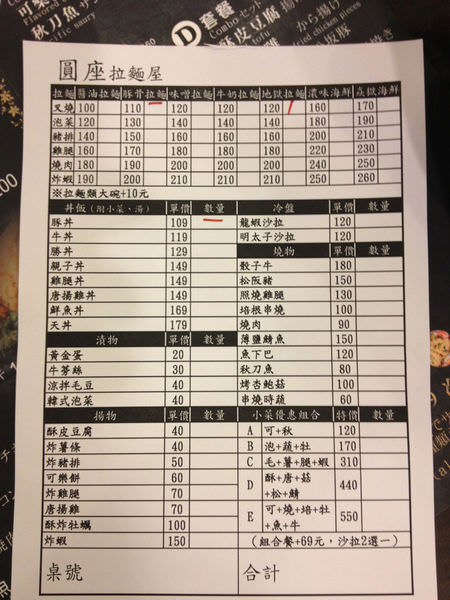 D 套餐
Combo セット
圓座拉麵屋
拉麵 醬油拉麵 豚骨拉麵 味噌拉麵 牛奶拉麵 地獄拉麵 濃味海鮮 焱獄海鮮
叉燒 100 110 120 120 120 160 170
泡菜 120 130 140 140 140 180 190
豬排 140 150 160 160 160 200 210
雞腿 160 170 180 180 180 220 230
燒肉 180 190 200 200 200 240 250
炸蝦 190 200 210 210 210 250 260
※拉麵類大碗+10元
丼飯(附小菜、湯) 單價 數量
豚丼 109
牛丼 119
勝丼 129
親子丼 149
雞腿丼 149
唐揚雞丼 149
鮮魚丼 169
天丼 179
漬物 單價 數量
黃金蛋 20
牛蒡絲 30
涼拌毛豆 40
韓式泡菜 40
揚物 單價 數量
酥皮豆腐 40
炸薯條 40
炸豬排 50
可樂餅 60
炸雞腿 70
唐揚雞 70
酥炸牡蠣 100
炸蝦 150
冷盤 單價 數量
龍蝦沙拉 120
明太子沙拉 120
燒物 單價 數量
骰子牛 180
松阪豬 150
照燒雞腿 130
培根串燒 100
燒肉 90
薄鹽鯖魚 150
魚下巴 120
秋刀魚 80
烤杏鮑菇 100
串燒時蔬 60
小菜優惠組合 特價 數量
A 可+秋 120
B 泡+蔬+牡 170
C 毛+薯+腿+蝦 310
D 酥+唐+菇
+松+鯖 440
E 可+燒+培+牡
+魚+牛 550
(組合餐+69元,沙拉2選一)
桌號
合計